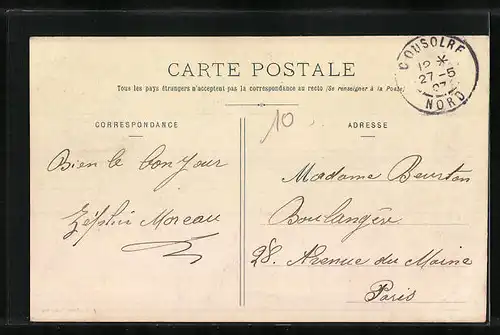 COUSOLRE
12 *
27 - 5
07
NORD
CARTE POSTALE
Tous les pays étrangers n'acceptent pas la correspondance au recto (Se renseigner à la Poste)
10
CORRESPONDANCE
Bien le bonjour
Zéphir Moreau
ADRESSE
Madame Beurton
Boulangère
28. Avenue du Maine
Paris